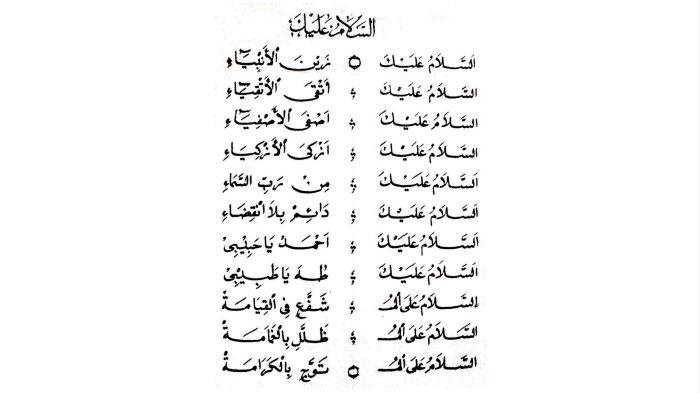 السَّلَامُ عَلَيْكَ
السَّلَامُ عَلَيْكَ زَيْنَ الْأَنْبِيَاءِ
السَّلَامُ عَلَيْكَ أَتْقَى الْأَتْقِيَاءِ
السَّلَامُ عَلَيْكَ اَصْفَى الْأَصْفِيَاءِ
السَّلَامُ عَلَيْكَ اَزْكَى الْأَزْكِيَاءِ
السَّلَامُ عَلَيْكَ مِنْ رَبِّ السَّمَاءِ
السَّلَامُ عَلَيْكَ دَائِمْ بِلَا انْقِضَاءِ
السَّلَامُ عَلَيْكَ اَحْمَدُ يَا حَبِيْبِيْ
السَّلَامُ عَلَيْكَ طٰهَ يَا طَبِيْبِيْ
السَّلَامُ عَلَى الْمُـ شَفَّعِ فِي الْقِيَامَةْ
السَّلَامُ عَلَى الْمُـ ظَلَّلِ بِالْغَمَامَةْ
السَّلَامُ عَلَى الْمُـ تَوَّجِ بِالْكَرَامَةْ